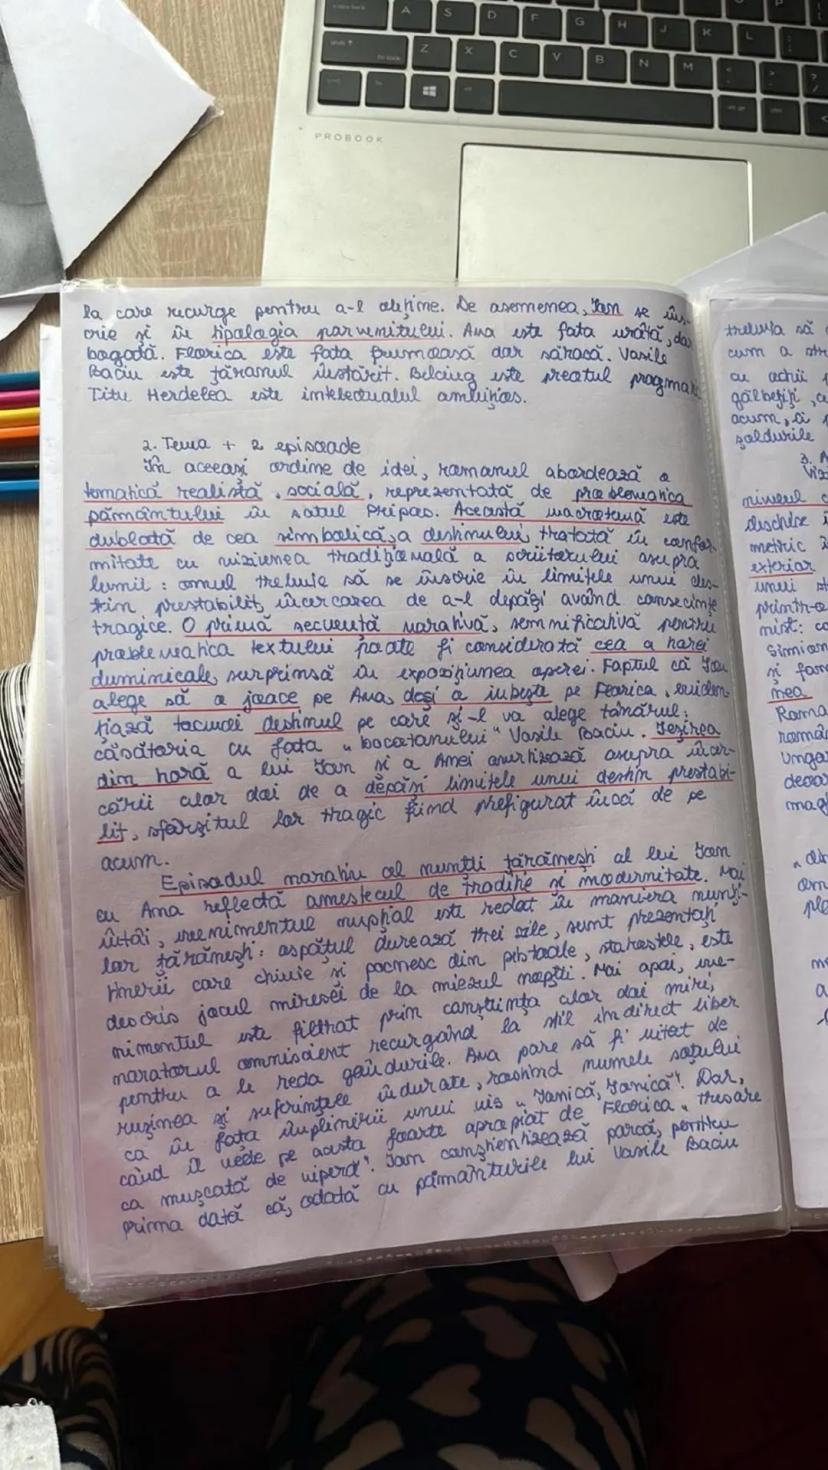 A S D F G H J K L
Z X C V B N M
PROBOOK
la care recurge pentru a-l obține. De asemenea, Ion se îns-
crie și în tipologia parvenitului. Ana este fata urâtă, dar
bogată. Florica este fata frumoasă dar săracă. Vasile
Baciu este țăranul înstărit. Belciug este preotul pragmatic
Titu Herdelea este intelectualul ambițios.
2. Tema + 2 episoade
În aceeași ordine de idei, romanul abordează o
tematică realistă, socială, reprezentată de problematica
pământului în satul Pripas. Această macrotemă este
dublată de cea simbolică, a destinului, tratată în confor-
mitate cu viziunea tradițională a scriitorului asupra
lumii: omul trebuie să se înscrie în limitele unui des-
tin prestabilit, încercarea de a-l depăși având consecințe
tragice. O primă secvență narativă, semnificativă pentru
problematica textului poate fi considerată cea a horei
duminicale, surprinsă în expozițiunea operei. Faptul că Ion
alege să o joace pe Ana, deși o iubește pe Florica, eviden-
țiază tocmai destinul pe care și-l va alege tânărul:
căsătoria cu fata "bocotanului" Vasile Baciu. Ieșirea
din horă a lui Ion și a Anei avertizează asupra încer-
cării celor doi de a depăși limitele unui destin prestabi-
lit, sfârșitul lor tragic fiind prefigurat încă de pe
acum.
Episodul narativ al nunții țărănești al lui Ion
cu Ana reflectă amestecul de tradiție și modernitate. Mai
întâi, evenimentul nupțial este redat în maniera nunți-
lor țărănești: ospățul durează trei zile, sunt prezentați
tinerii care chiuie și pocnesc din pistoale, starostele, este
descris jocul miresei de la miezul nopții. Mai apoi, eve-
nimentul este filtrat prin conștiința celor doi miri,
naratorul omniscient recurgând la stil indirect liber
pentru a le reda gândurile. Ana pare să fi uitat de
rușinea și suferințele îndurate, rostind numele soțului
ca în fața împlinirii unui vis "Ionică, Ionică". Dar,
când îl vede pe acesta foarte apropiat de Florica "tresare
ca mușcată de viperă". Ion conștientizează parcă, pentru
prima dată că, odată cu pământurile lui Vasile Baciu
trebuia să
cum a
cu ochii
acum, și
șoldurile
3.
deschise
exterior
unui
Simion
și
nea
Roma
român
Unga